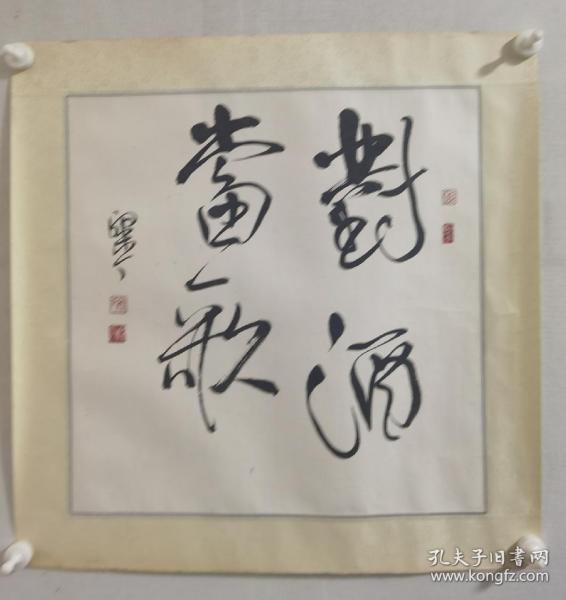 對酒
當歌
孔夫子旧书网
www.kongfz.com